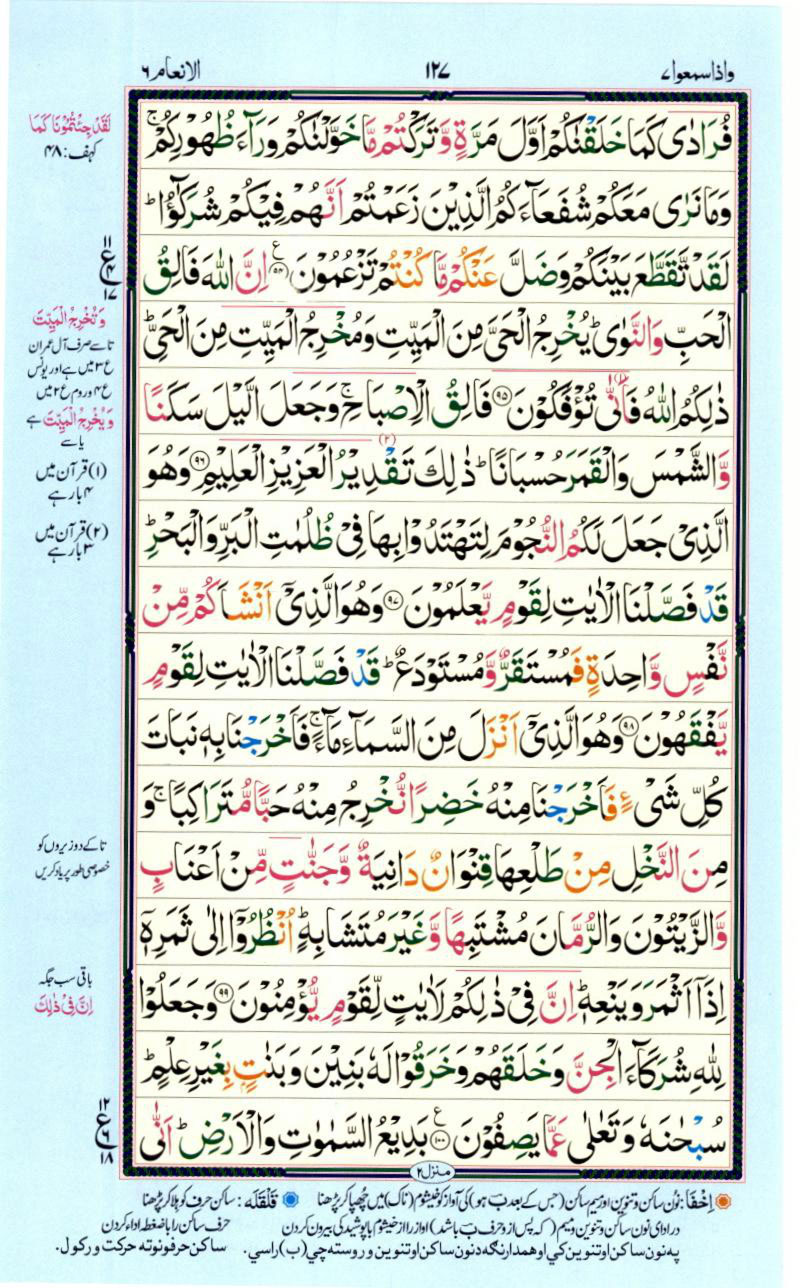 واذاسمعوا٧
١٢٧
الانعام ٦
فُرَادٰى كَمَا خَلَقْنٰكُمْ اَوَّلَ مَرَّةٍ وَّتَرَكْتُمْ مَّا خَوَّلْنٰكُمْ وَرَآءَ ظُهُوْرِكُمْ ۚ
وَمَا نَرٰى مَعَكُمْ شُفَعَآءَكُمُ الَّذِيْنَ زَعَمْتُمْ اَنَّهُمْ فِيْكُمْ شُرَكٰٓؤُا ؕ
لَقَدْ تَّقَطَّعَ بَيْنَكُمْ وَضَلَّ عَنْكُمْ مَّا كُنْتُمْ تَزْعُمُوْنَ ۝ اِنَّ اللّٰهَ فَالِقُ
الْحَبِّ وَالنَّوٰى ؕ يُخْرِجُ الْحَىَّ مِنَ الْمَيِّتِ وَمُخْرِجُ الْمَيِّتِ مِنَ الْحَىِّ ؕ
ذٰلِكُمُ اللّٰهُ فَاَنّٰى (١) تُؤْفَكُوْنَ ۝٩٥ فَالِقُ الْاِصْبَاحِ ۚ وَجَعَلَ الَّيْلَ سَكَنًا
وَّالشَّمْسَ وَالْقَمَرَ حُسْبَانًا ؕ ذٰلِكَ (٢) تَقْدِيْرُ الْعَزِيْزِ الْعَلِيْمِ ۝٩٦ وَهُوَ
الَّذِىْ جَعَلَ لَكُمُ النُّجُوْمَ لِتَهْتَدُوْا بِهَا فِىْ ظُلُمٰتِ الْبَرِّ وَالْبَحْرِ ؕ
قَدْ فَصَّلْنَا الْاٰيٰتِ لِقَوْمٍ يَّعْلَمُوْنَ ۝٩٧ وَهُوَ الَّذِىْٓ اَنْشَاَكُمْ مِّنْ
نَّفْسٍ وَّاحِدَةٍ فَمُسْتَقَرٌّ وَّمُسْتَوْدَعٌ ؕ قَدْ فَصَّلْنَا الْاٰيٰتِ لِقَوْمٍ
يَّفْقَهُوْنَ ۝٩٨ وَهُوَ الَّذِىْٓ اَنْزَلَ مِنَ السَّمَآءِ مَآءً ۚ فَاَخْرَجْنَا بِهٖ نَبَاتَ
كُلِّ شَىْءٍ فَاَخْرَجْنَا مِنْهُ خَضِرًا نُّخْرِجُ مِنْهُ حَبًّا مُّتَرَاكِبًا ۚ وَ
مِنَ النَّخْلِ مِنْ طَلْعِهَا قِنْوَانٌ دَانِيَةٌ وَّجَنّٰتٍ مِّنْ اَعْنَابٍ
وَّالزَّيْتُوْنَ وَالرُّمَّانَ مُشْتَبِهًا وَّغَيْرَ مُتَشَابِهٍ ؕ اُنْظُرُوْٓا اِلٰى ثَمَرِهٖٓ
اِذَآ اَثْمَرَ وَيَنْعِهٖ ؕ اِنَّ فِىْ ذٰلِكُمْ لَاٰيٰتٍ لِّقَوْمٍ يُّؤْمِنُوْنَ ۝٩٩ وَجَعَلُوْا
لِلّٰهِ شُرَكَآءَ الْجِنَّ وَخَلَقَهُمْ وَخَرَقُوْا لَهٗ بَنِيْنَ وَبَنٰتٍ بِغَيْرِ عِلْمٍ ؕ
سُبْحٰنَهٗ وَتَعٰلٰى عَمَّا يَصِفُوْنَ ۝١٠٠ بَدِيْعُ السَّمٰوٰتِ وَالْاَرْضِ ؕ اَنّٰى
منزل٢
لَقَدْ جِئْتُمُوْنَا كَمَا
کہف : ۴۸
١١
ع
٤
١٧
وَتُخْرِجُ الْمَيِّتَ
تا سے صرف آل عمران
ع ۳ میں ہے اور یونس
ع ۴ و روم ع ۲ میں
وَيُخْرِجُ الْمَيِّتَ ہے
یا سے
(۱) قرآن میں
۴ بار ہے
(۲) قرآن میں
۳ بار ہے
تا کے دو زیروں کو
خصوصی طور پر یاد کریں
باقی سب جگہ
اِنَّ فِىْ ذٰلِكَ
١٢
ع
٦
١٨
اِخْفَا : نُون ساکن و تنوین اور میم ساکن (جس کے بعد بَ ہو) کی آواز کو خیشوم (ناک) میں چھپا کر پڑھنا
قَلْقَلَہ : ساکن حرف کو ہلا کر پڑھنا
در ادای نون ساکن و تنوین و میم (که پس از و حرف بَ باشد) اواز را از خیشوم با پوشیدگی بیرون کردن
حرف ساکن را با ضغط اداء کردن
په نون ساکن او تنوین کي او همدارنګه د نون ساکن او تنوین وروسته چي (ب) راسي.
ساکن حرفونو ته حرکت ورکول.